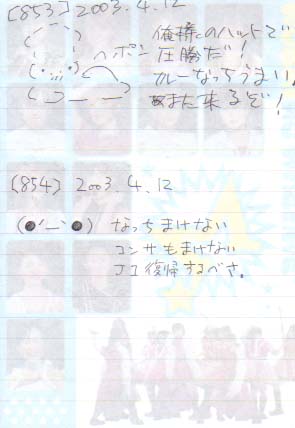 [853] 2003.4.12
俺様のハットで
ヘポン 圧勝だ!
カレーなっちうまい!
また来るぞ!
[854] 2003.4.12
(●´ー`●) なっちまけない
コンサもまけない
J1復帰するべさ。